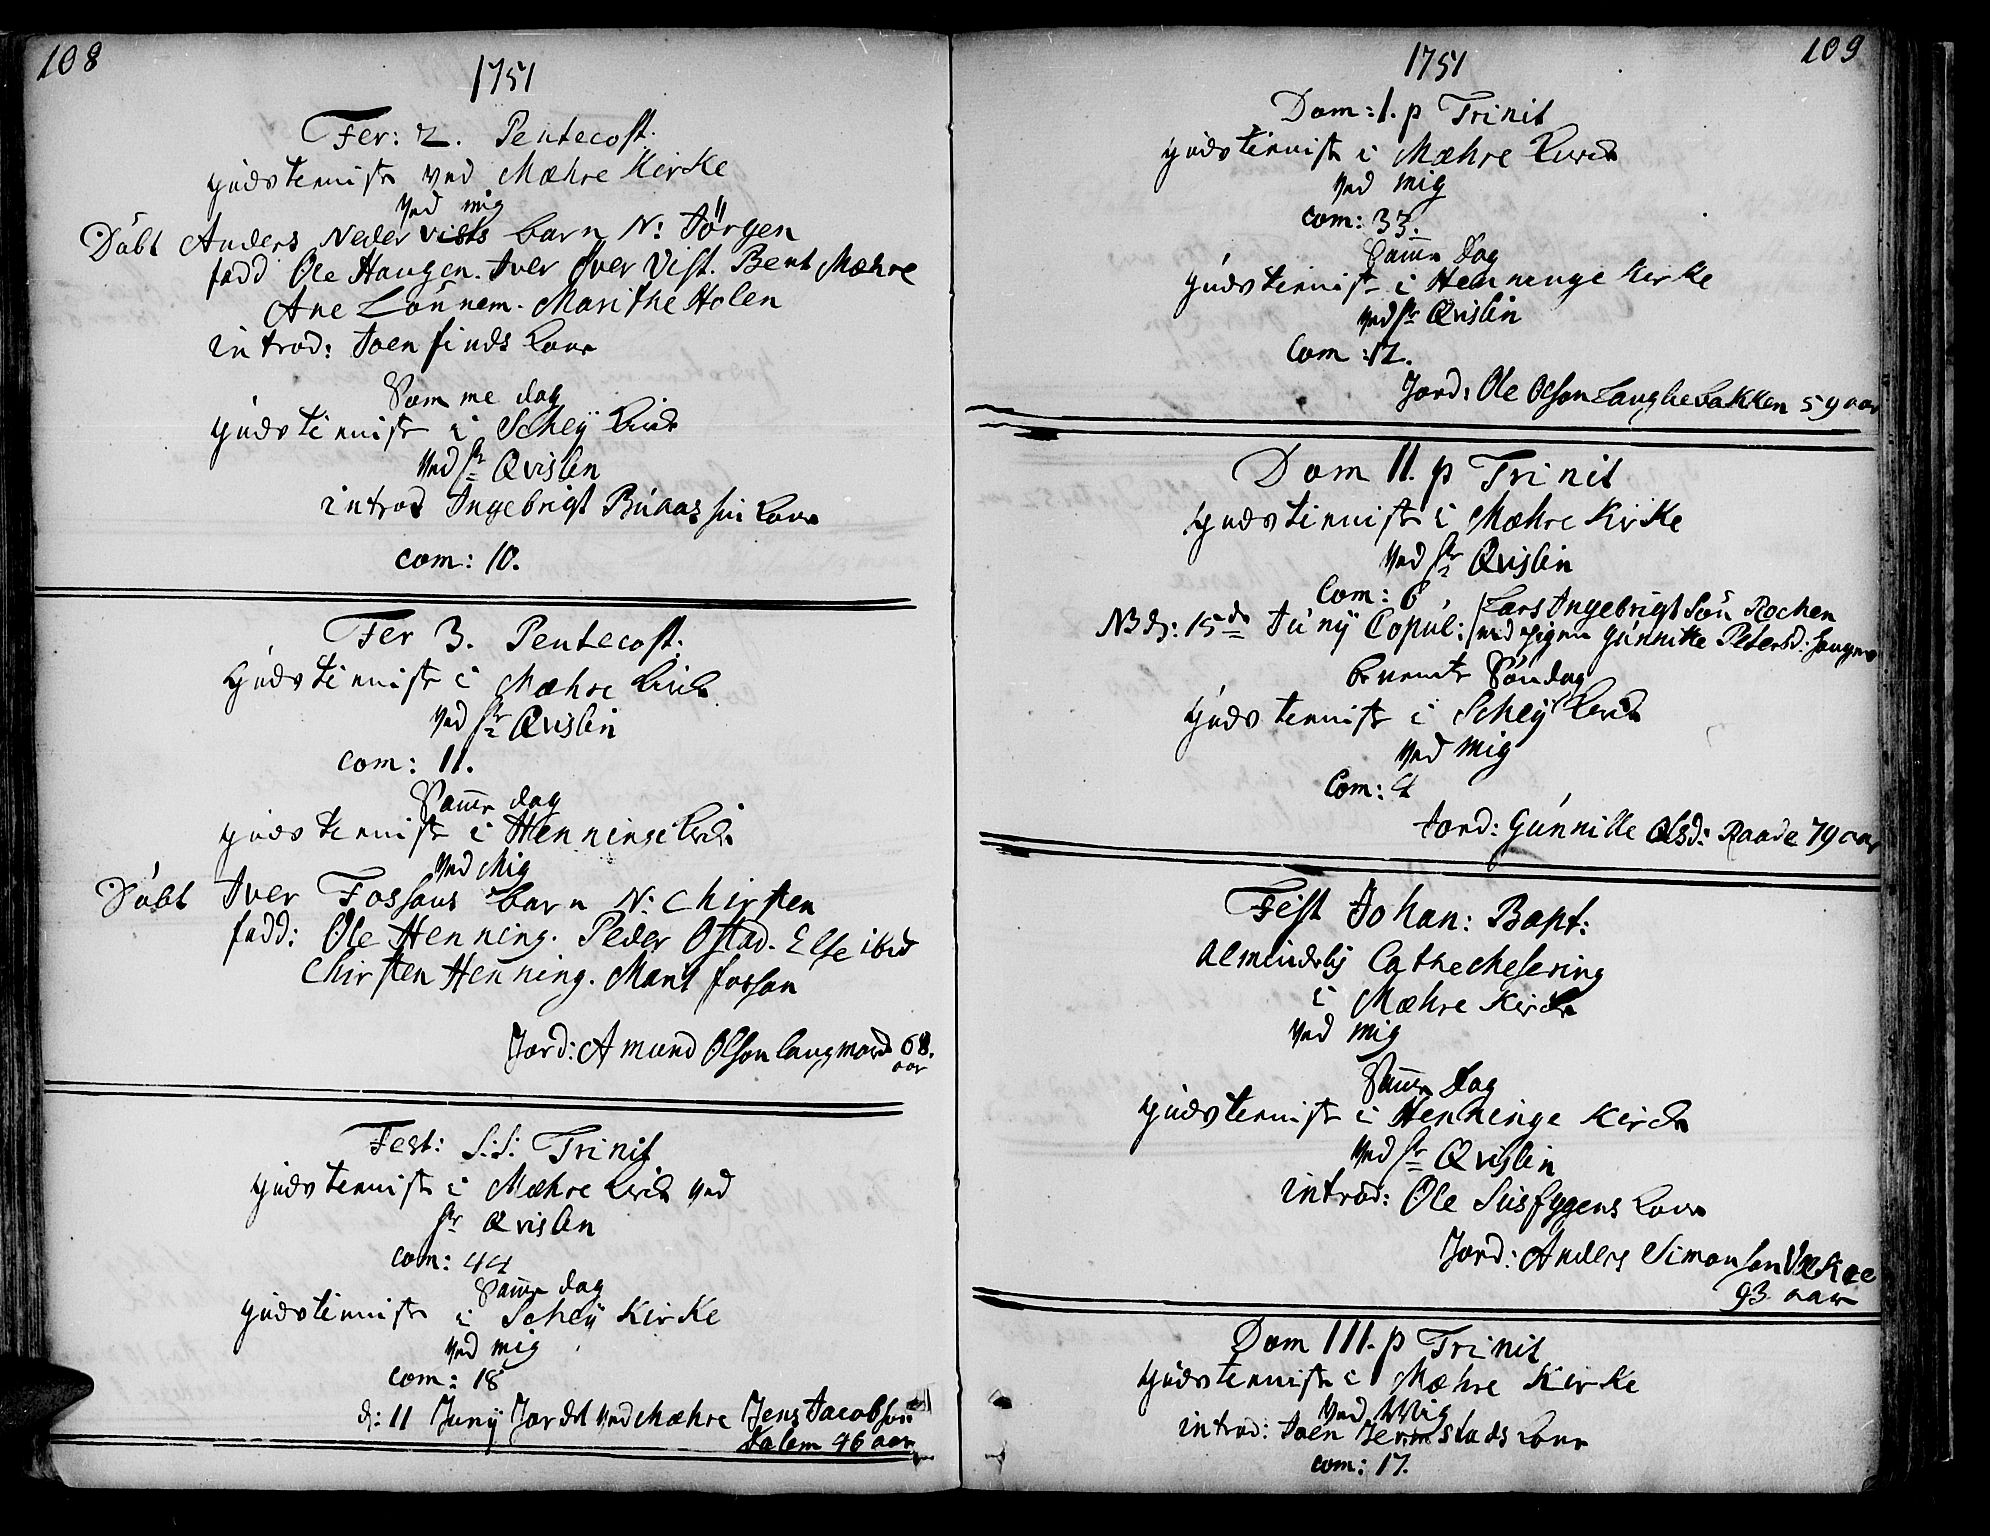 108
1751
Fer: 2. Pentecost.
gudstienist ved Mæhre Kirke
ved mig
Döbt Anders Nedervists barn N: Jörgen
fadd Ole Haugen. Iver Över Vist. Bent Mæhre
Ane Lönnem. Marithe Holen
introd: Joen finds Kone
Samme dag
gudstienist i Schey Kirke
ved Sr Qvislin
introd Ingebrigt Búaas sin Kone
com: 10.
Fer 3. Pentecost:
Gudstienist i Mæhre Kirke
ved Sr Qvislin
com: 11.
Samme dag
gudstienist i Henninge Kirke
ved Mig
Döbt Iver Fossans barn N: Chirsten
fadd: Ole Henning. Peder Ostad. Else ibid
Chirsten Henning. Marit fossan
Jord: Amund Olson Langmarch 68.
aar
Fest: S:S: Trinit
gudstienist i Mæhre Kirke ved
Sr Qvislin
com: 44
Samme dag
gudstienist i Schey Kirke
ved mig
com: 18
d: 11 Juny Jordet ved Mæhre Jens Jacobson
Dalem 46 aar
109
1751
Dom: I. p Trinit
gudstienist i Mæhre Kirke
ved mig
com: 33.
Samme Dag
gudstienist i Henninge Kirke
ved Sr Qvislin
Com: 12.
Jord: Ole Olson Laughebakken 59 aar
Dom II. p Trinit
Gudstienist i Mæhre Kirke
ved Sr Qvislin
Com: 6
Lars Ingebrigtsön Rochen
NB d: 15de Júny Copúl: med pigen Gúnnilke Petersd:
Söndag
Gudstienist i Schey Kirke
ved mig
Com: 4
Jord: Gúnnille Olsd: Raade 79 aar
Fest Johan: Bapt:
almindelig Cathechesering
i Mæhre Kirche
ved mig
Samme Dag
gudstienist i Henninge Kirche
ved Sr Qvislin
introd: Ole Kone
Jord: Anders Simonson
93 aar
Dom III. p Trinit
Gudstienist i Mæhre Kirke
ved Mig
introd: Joen Jermstads Kone
com: 17.